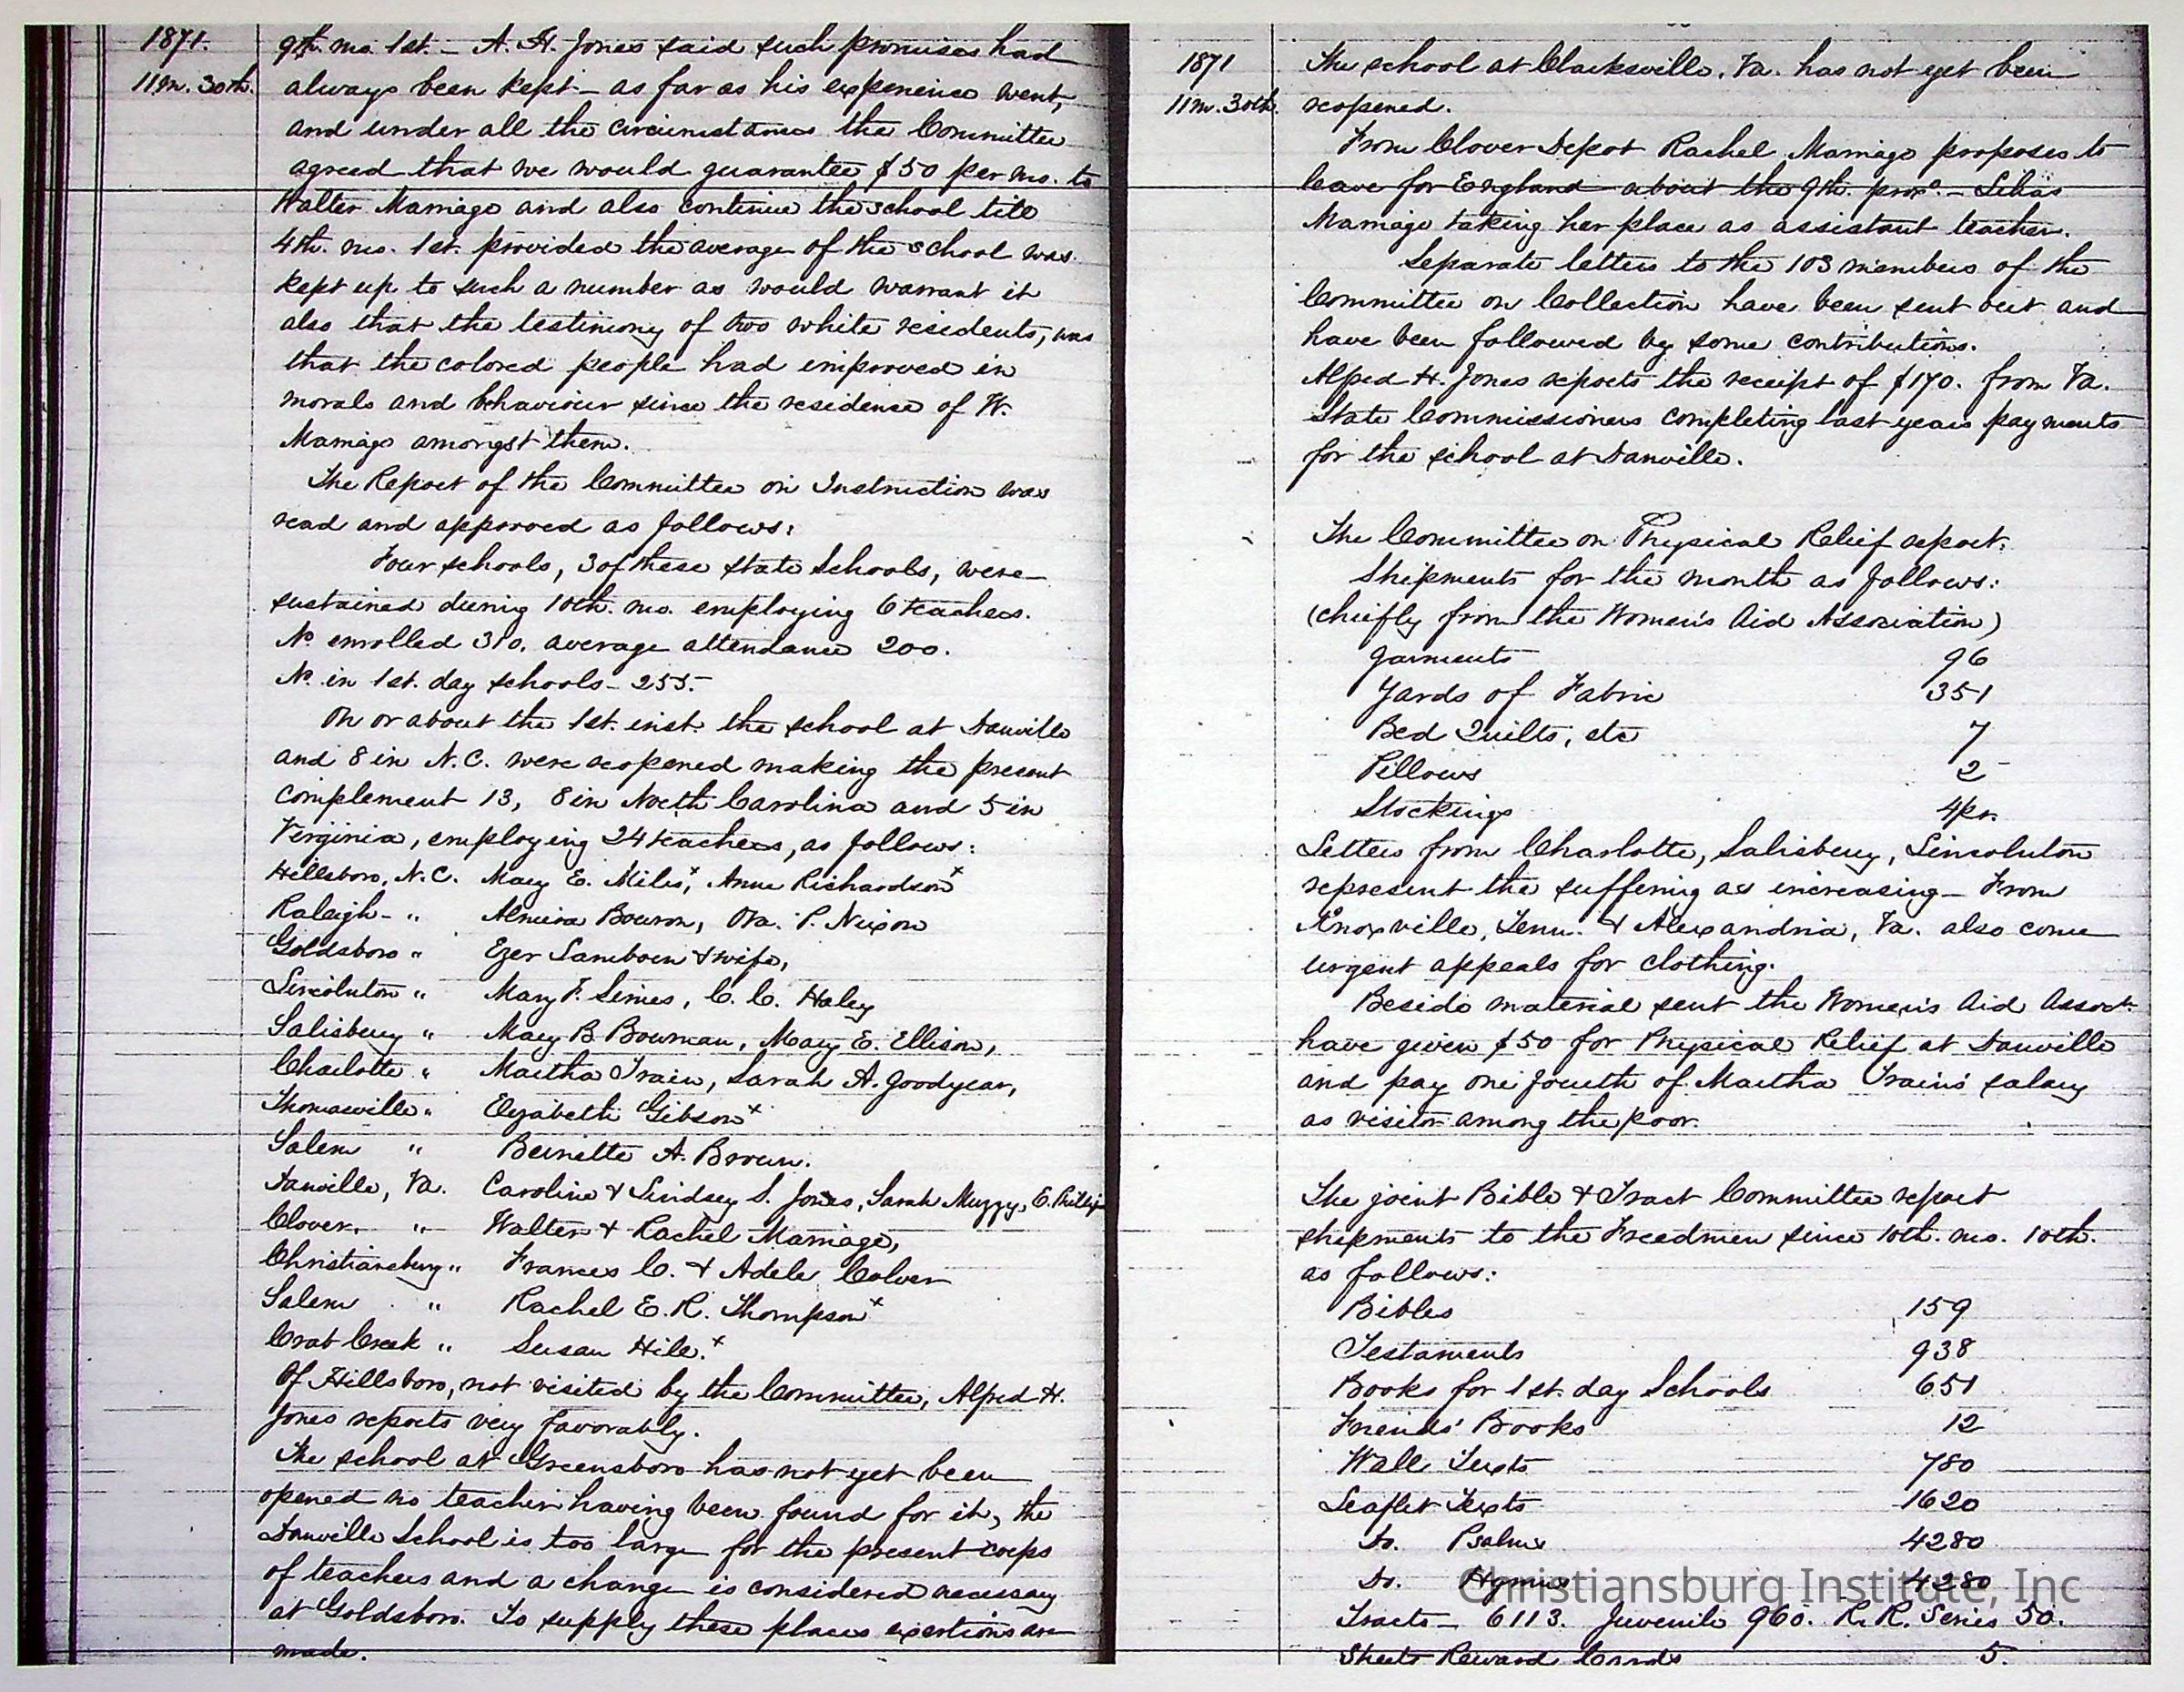 1871.
11m. 30th.
9th. mo. 1st. — A. H. Jones said such promises had
always been kept — as far as his experience went,
and under all the circumstances the Committee
agreed that we would guarantee $50 per mo. to
Walter Marriage and also continue the school till
4th. mo. 1st. provided the average of the school was
kept up to such a number as would warrant it
also that the testimony of two white residents, was
that the colored people had improved in
morals and behaviour since the residence of W.
Marriage amongst them.
The Report of the Committee on Instruction was
read and approved as follows:
Four schools, 3 of these State Schools, were
sustained during 10th. mo. employing 6 teachers.
No. enrolled 310, average attendance 200.
No. in 1st. day schools — 255.
On or about the 1st. inst. the school at Danville
and 8 in N.C. were reopened making the present
complement 13, 8 in North Carolina and 5 in
Virginia, employing 24 teachers, as follows:
Hillsboro, N.C. Mary E. Miles,x Anna Richardsonx
Raleigh — " Almira Bowron, Wm. P. Nixon
Goldsboro " Ezer Lamborn & wife,
Lincolnton " Mary F. Simes, C. C. Haley
Salisbury " Mary B. Bowman, Mary E. Ellison,
Charlotte " Martha Train, Sarah A. Goodyear,
Thomasville " Elizabeth Gibsonx
Salem " Burnette A. Brown.
Danville, Va. Caroline & Lindsey S. Jones, Sarah Muzzy, E. Phillips
Clover, " Walter & Rachel Marriage,
Christiansburg " Frances C. & Adele Colver
Salem " Rachel E. R. Thompsonx
Crab Creek " Susan Hill.x
Of Hillsboro, not visited by the Committee, Alfred H.
Jones reports very favorably.
The school at Greensboro has not yet been
opened no teacher having been found for it, the
Danville School is too large for the present corps
of teachers and a change is considered necessary
at Goldsboro. To supply these places exertions are
made.
1871
11m. 30th.
The school at Clarksville, Va. has not yet been
reopened.
From Clover Depot Rachel Marriage proposes to
leave for England about the 9th. proxo. — Silas
Marriage taking her place as assistant teacher.
Separate letters to the 103 members of the
Committee on Collection have been sent out and
have been followed by some contributions.
Alfred H. Jones reports the receipt of $170. from Va.
State Commissioners completing last years payments
for the school at Danville.
The Committee on Physical Relief report.
Shipments for the month as follows:
(chiefly from the Women's Aid Association)
Garments 96
Yards of Fabric 351
Bed Quilts, etc 7
Pillows 2
Stockings 4 pr.
Letters from Charlotte, Salisbury, Lincolnton
represent the suffering as increasing — From
Knoxville, Tenn. & Alexandria, Va. also come
urgent appeals for clothing.
Beside material sent the Women's Aid Assoctn.
have given $50 for Physical Relief at Danville
and pay one fourth of Martha Train's salary
as visitor among the poor.
The joint Bible & Tract Committee report
shipments to the Freedmen since 10th. mo. 10th.
as follows:
Bibles 159
Testaments 938
Books for 1st. day Schools 651
Friends' Books 12
Wall Texts 780
Leaflet Texts 1620
Do. Psalms 4280
Do. Hymns 4280
Christiansburg Institute, Inc
Tracts — 6113. Juvenile 960. R. R. Series 50.
Sheets Reward Cards 5.